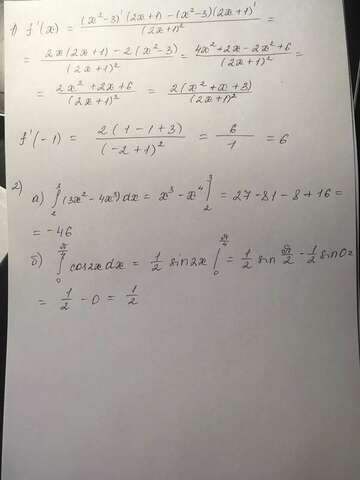 1) f'(x) = ((x²-3)'(2x+1) - (x²-3)(2x+1)')/(2x+1)² =
= (2x(2x+1) - 2(x²-3))/(2x+1)² = (4x²+2x-2x²+6)/(2x+1)² =
= (2x²+2x+6)/(2x+1)² = 2(x²+x+3)/(2x+1)²
f'(-1) = 2(1-1+3)/(-2+1)² = 6/1 = 6
2) а) ∫₂³ (3x²-4x³)dx = x³-x⁴|₂³ = 27-81-8+16=
= -46
б) ∫₀^(π/4) cos2x dx = 1/2 sin2x |₀^(π/4) = 1/2 sin π/2 - 1/2 sin0=
= 1/2 - 0 = 1/2